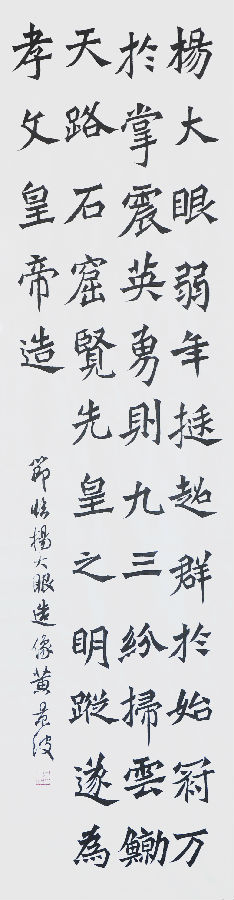 楊大眼弱年挺超群於始冠万
於掌震英勇則九三紛掃雲鯨
天路石窟覽先皇之明蹤遂為
孝文皇帝造
節临楊大眼造像黄景波